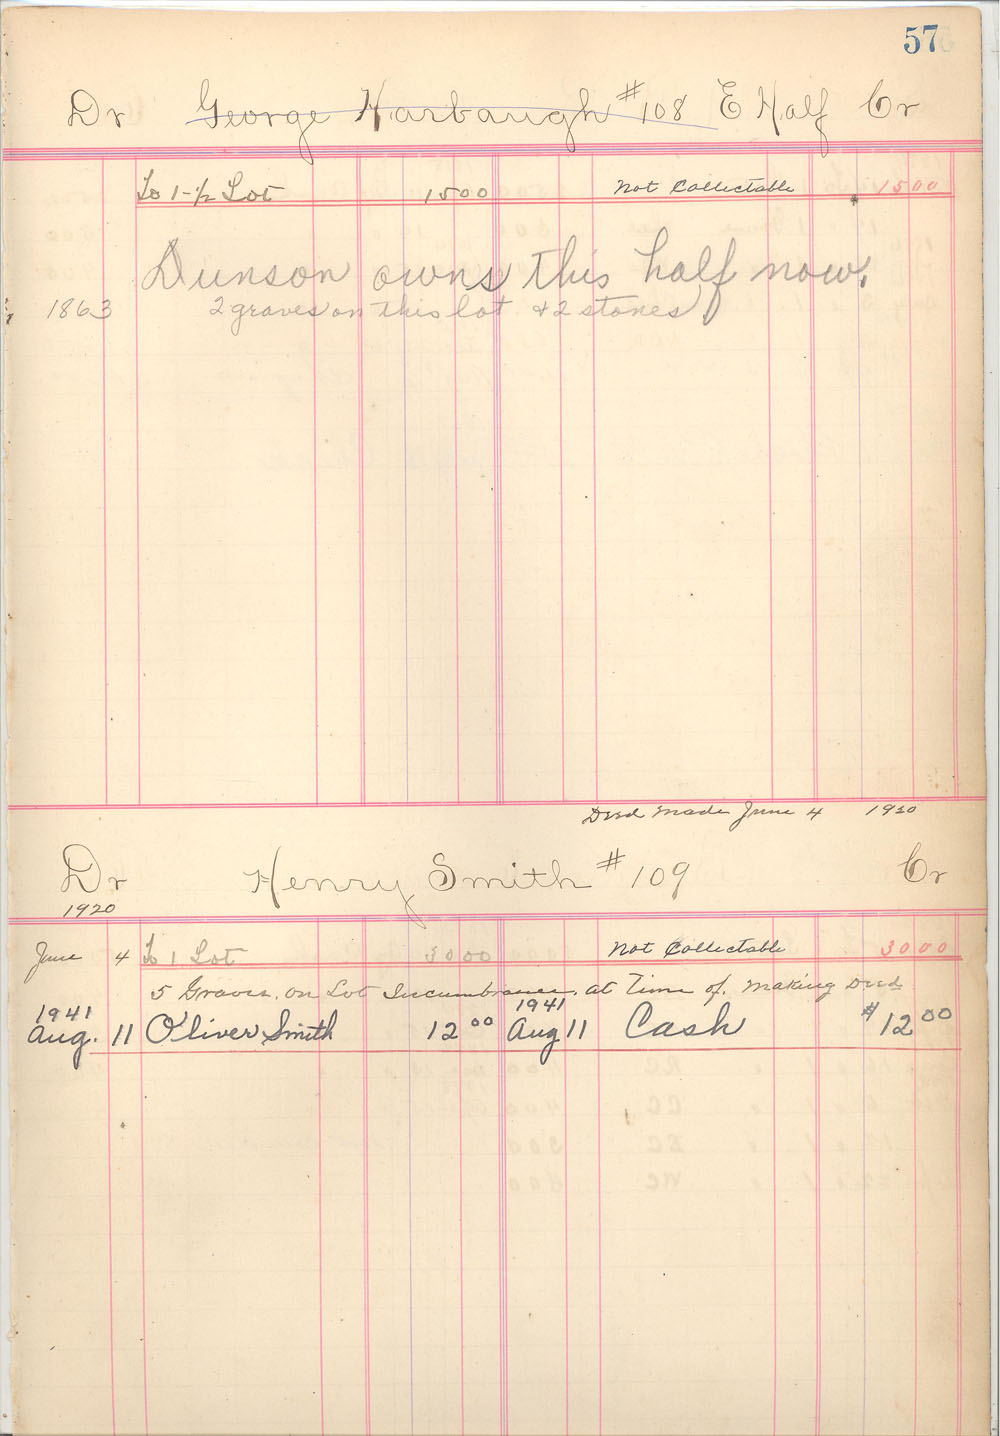 57
Dr George Harbaugh #108 E Half Cr
To 1-1/2 Lot 1500 Not Collectable 1500
Dunson owns this half now.
1863 2 graves on this lot & 2 stones
Deed Made June 4 1920
Dr Henry Smith #109 Cr
1920
June 4 To 1 Lot 3000 Not Collectable 3000
5 Graves on Lot Incumbrance at Time of Making Deed
1941 1941
Aug. 11 Oliver Smith 12 00 Aug 11 Cash $12 00